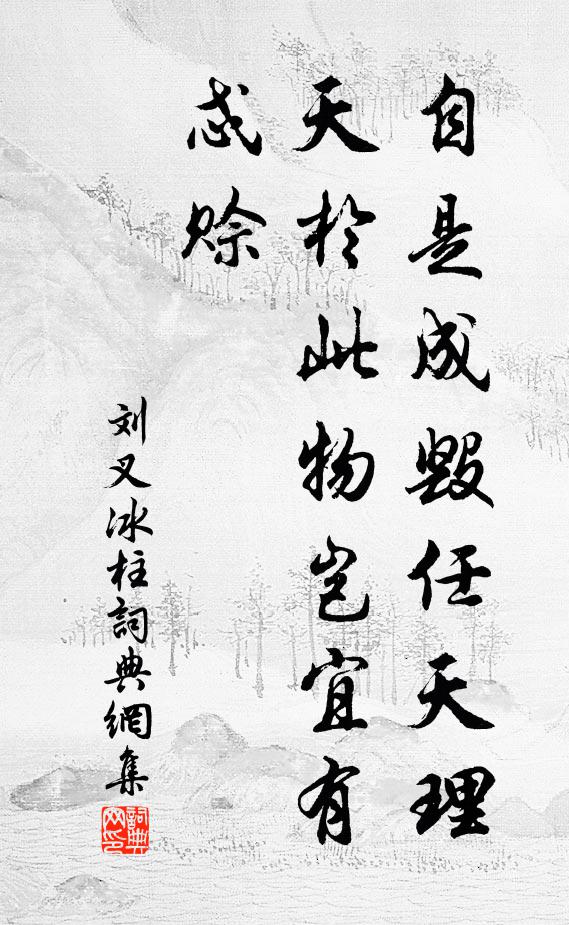 自是成毀任天理
天於此物豈宜有
忒賒
刘叉冰柱詞典網集
詞典
网印